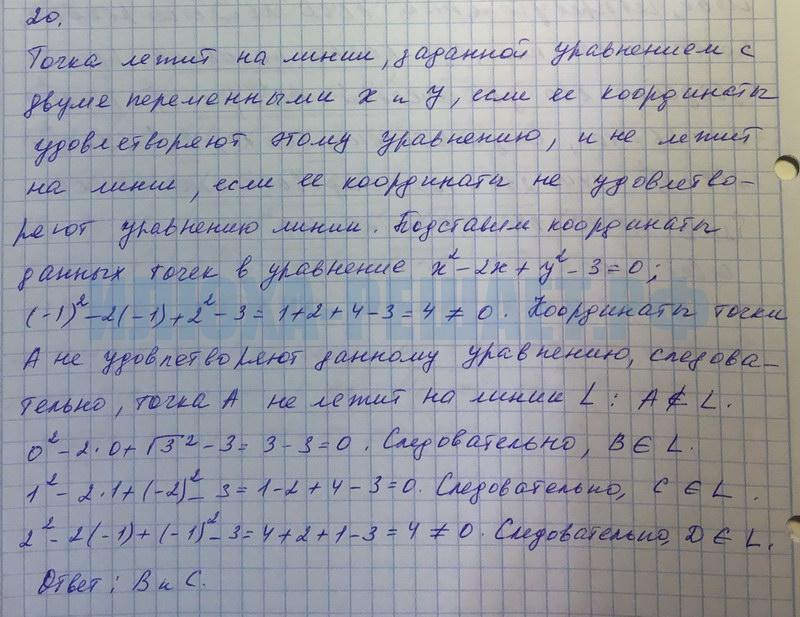 20.
Точка лежит на линии, заданной уравнением с
двуме переменными x и y, если ее координаты
удовлетворяют этому уравнению, и не лежит
на линии, если ее координаты не удовлетво-
ряют уравнению линии. Подставим координаты
данных точек в уравнение x² - 2x + y² - 3 = 0;
(-1)² - 2(-1) + 2² - 3 = 1 + 2 + 4 - 3 = 4 ≠ 0. Координаты точки
A не удовлетворяют данному уравнению, следова-
тельно, точка A не лежит на линии L: A ∉ L.
0² - 2·0 + √3² - 3 = 3 - 3 = 0. Следовательно, B ∈ L.
1² - 2·1 + (-2)² - 3 = 1 - 2 + 4 - 3 = 0. Следовательно, C ∈ L.
2² - 2(-1) + (-1)² - 3 = 4 + 2 + 1 - 3 = 4 ≠ 0. Следовательно, D ∈ L.
Ответ: B и C.